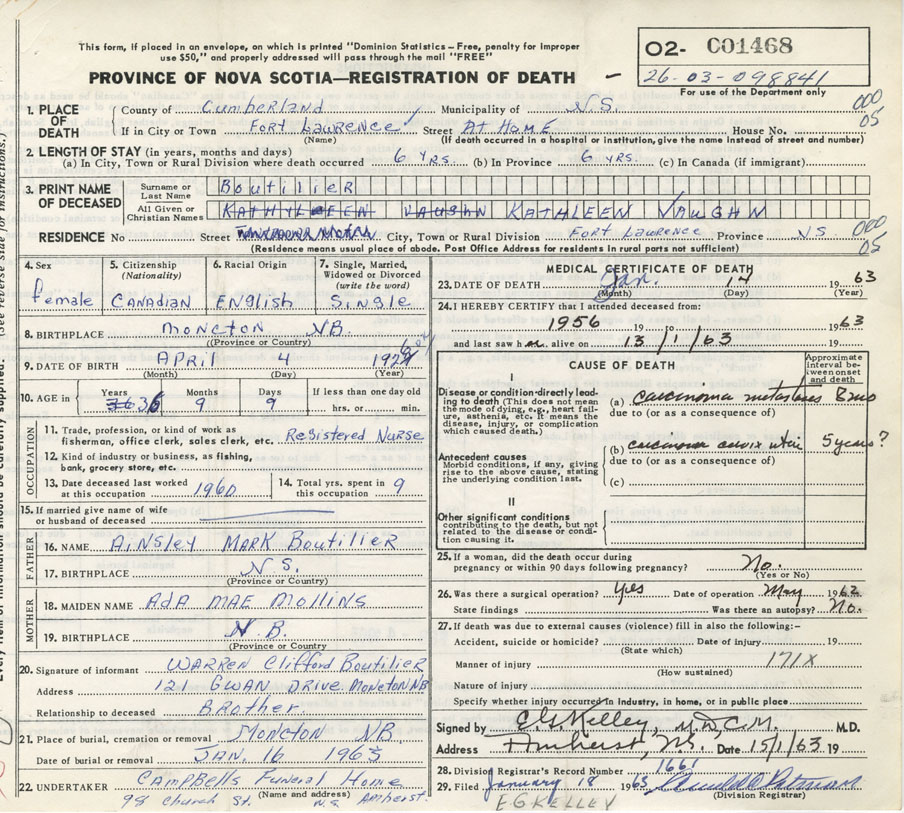 This form, if placed in an envelope, on which is printed "Dominion Statistics – Free, penalty for improper
use $50," and properly addressed will pass through the mail "FREE"
O2- C01468
26-03-098841
For use of the Department only
PROVINCE OF NOVA SCOTIA—REGISTRATION OF DEATH
000
05
1. PLACE OF DEATH County of Cumberland Municipality of N.S.
If in City or Town Fort Lawrence Street At Home House No.
(Name) (If death occurred in a hospital or institution, give the name instead of street and number)
2. LENGTH OF STAY (in years, months and days)
(a) In City, Town or Rural Division where death occurred 6 yrs. (b) In Province 6 yrs. (c) In Canada (if immigrant)
3. PRINT NAME OF DECEASED Surname or Last Name Boutilier
All Given or Christian Names KATHYLEEEN VAUGHN KATHLEEN VAUGHN
RESIDENCE No Street City, Town or Rural Division Fort Lawrence Province N.S.
000
05
(Residence means usual place of abode. Post Office Address for residents in rural parts not sufficient)
4. Sex Female
5. Citizenship (Nationality) CANADIAN
6. Racial Origin English
7. Single, Married, Widowed or Divorced (write the word) Single
8. BIRTHPLACE Moncton NB.
(Province or Country)
9. DATE OF BIRTH APRIL 4
(Month) (Day) (Year)
10. AGE in Years 36 Months 9 Days 9 If less than one day old hrs. or min.
OCCUPATION
11. Trade, profession, or kind of work as fisherman, office clerk, sales clerk, etc. Registered Nurse
12. Kind of industry or business, as fishing, bank, grocery store, etc.
13. Date deceased last worked at this occupation 1960 14. Total yrs. spent in this occupation 9
15. If married give name of wife or husband of deceased
FATHER
16. NAME Ainsley Mark Boutilier
17. BIRTHPLACE N.S.
(Province or Country)
MOTHER
18. MAIDEN NAME Ada Mae Mollins
19. BIRTHPLACE N.B.
(Province or Country)
20. Signature of informant Warren Clifford Boutilier
Address 121 Gwan Drive. Moncton NB
Relationship to deceased Brother
21. Place of burial, cremation or removal Moncton NB
Date of burial or removal Jan. 16 1963
22. UNDERTAKER Campbells Funeral Home
(Name and address)
98 Church St. N.S. Amherst.
MEDICAL CERTIFICATE OF DEATH
23. DATE OF DEATH Jan. 14 1963
(Month) (Day) (Year)
24. I HEREBY CERTIFY that I attended deceased from:
1956 19 to 1963
and last saw h er alive on 13/1/63 19
CAUSE OF DEATH
Approximate interval between onset and death
I
Disease or condition directly leading to death (This does not mean the mode of dying, e.g., heart failure, asthenia, etc. It means the disease, injury, or complication which caused death.)
(a) carcinoma metastases 8 mos
due to (or as a consequence of)
Antecedent causes
Morbid conditions, if any, giving rise to the above cause, stating the underlying condition last.
(b) carcinoma cervix uteri 5 years?
due to (or as a consequence of)
(c)
II
Other significant conditions
contributing to the death, but not related to the disease or condition causing it.
25. If a woman, did the death occur during pregnancy or within 90 days following pregnancy? No.
(Yes or No)
26. Was there a surgical operation? Yes Date of operation May 1962
State findings Was there an autopsy? No.
27. If death was due to external causes (violence) fill in also the following:–
Accident, suicide or homicide? Date of injury 19
(State which)
Manner of injury 171X
(How sustained)
Nature of injury
Specify whether injury occurred in industry, in home, or in public place
Signed by E G Kelley, M.D.C.M. M.D.
Address Amherst, N.S. Date 15/1/63 19
28. Division Registrar's Record Number 1661
29. Filed January 18 1963
(Division Registrar)
E G KELLEY